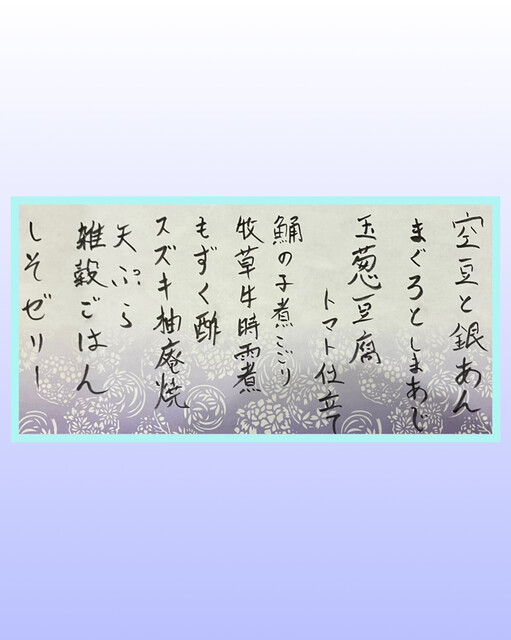 空豆と銀あん
まぐろとしまあじ
玉葱豆腐
トマト仕立て
鯒の子煮こごり
牧草牛時雨煮
もずく酢
スズキ柚庵焼
天ぷら
雑穀ごはん
しそゼリー